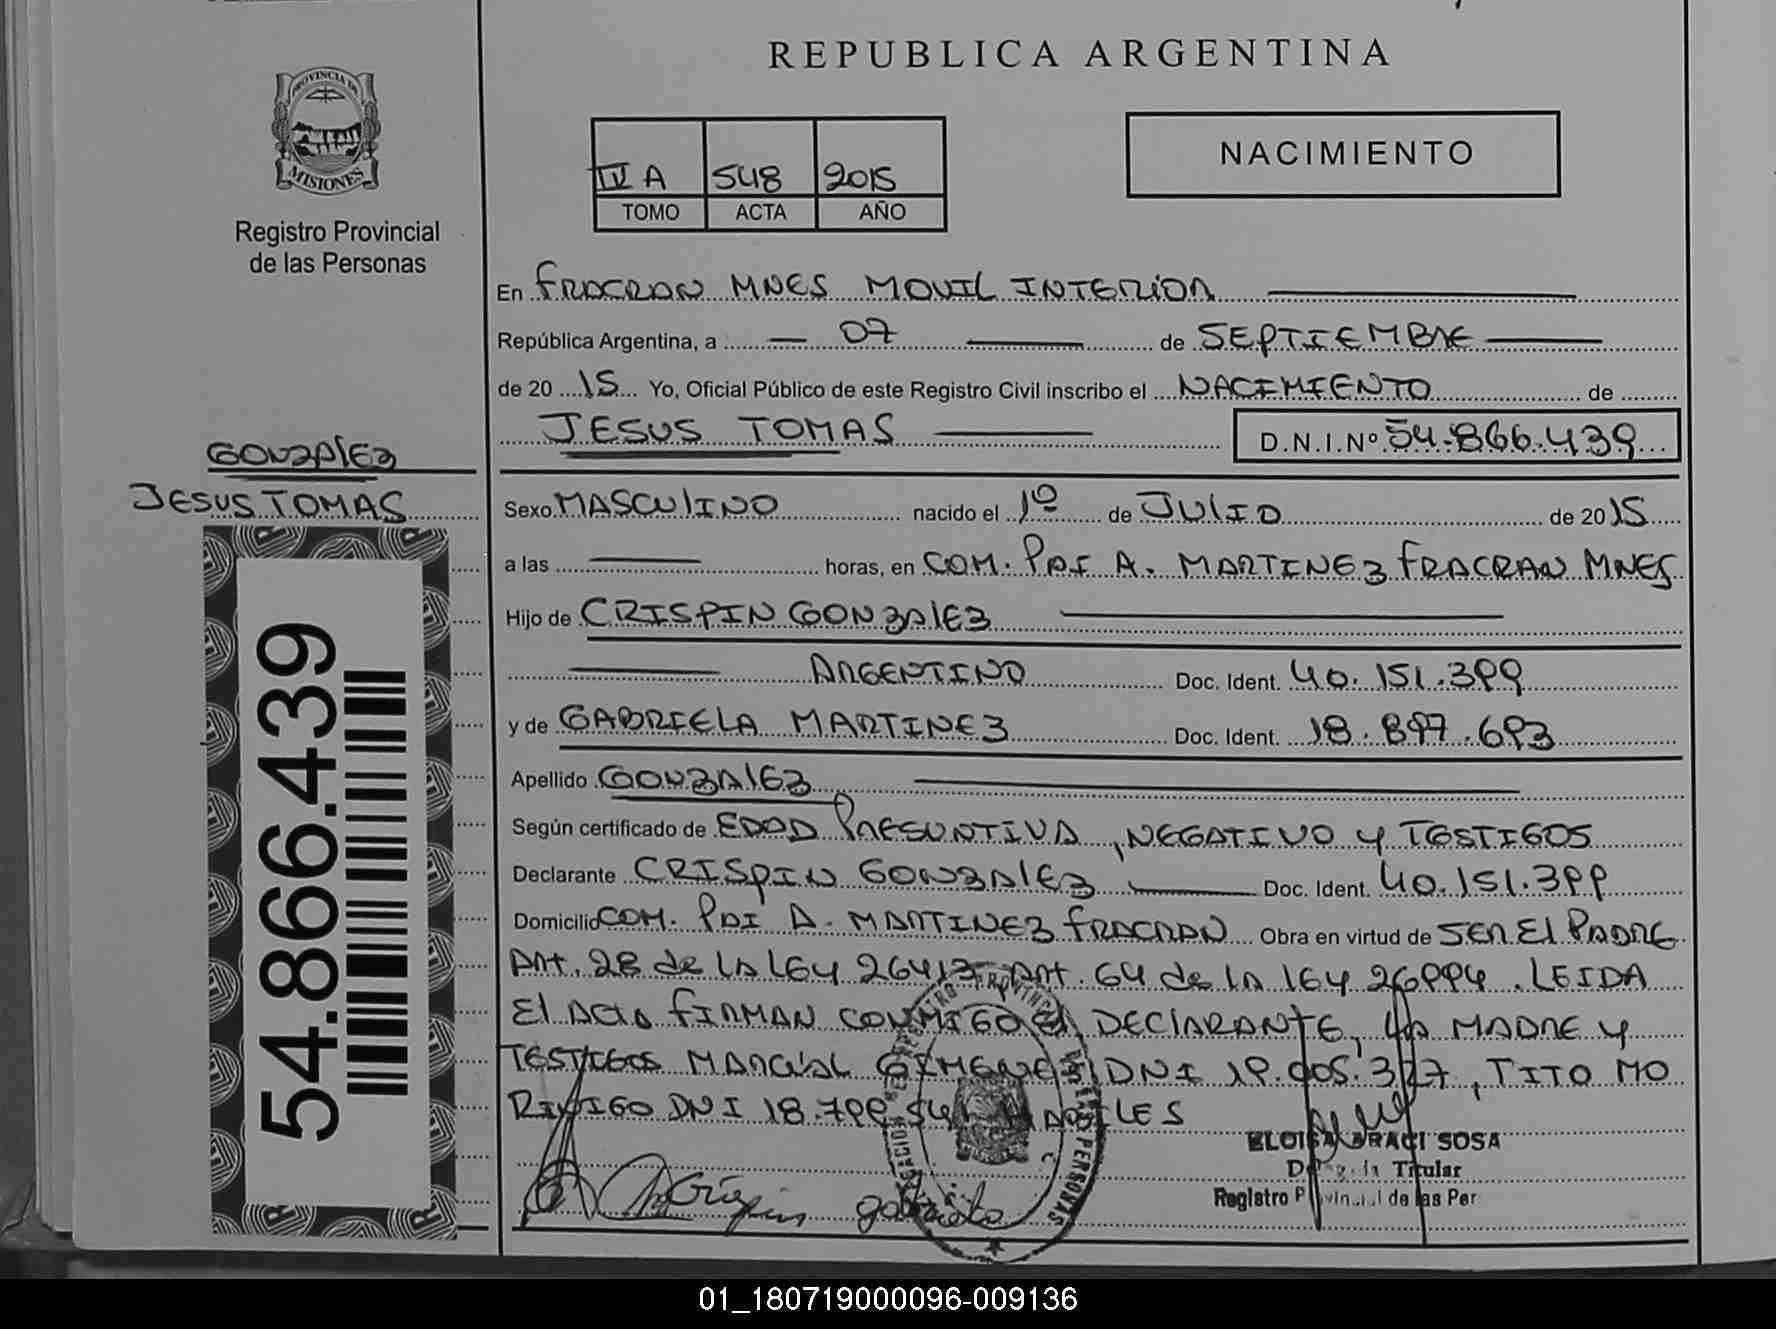 REPUBLICA ARGENTINA
PROVINCIA DE
MISIONES
Registro Provincial
de las Personas
NACIMIENTO
IV A 548 2015
TOMO ACTA AÑO
En FRACRAN MNES MOVIL INTERIOR
República Argentina, a 07 de SEPTIEMBRE
de 20 15 Yo, Oficial Público de este Registro Civil inscribo el NACIMIENTO de
JESUS TOMAS D.N.I.Nº 54.866.439
GONZALEZ
JESUS TOMAS
54.866.439
Sexo MASCULINO nacido el 1º de JULIO de 20 15
a las horas, en COM. PAI A. MARTINEZ FRACRAN MNES
Hijo de CRISPIN GONZALEZ
ARGENTINO Doc. Ident. 40.151.399
y de GABRIELA MARTINEZ Doc. Ident. 18.897.693
Apellido GONZALEZ
Según certificado de EDAD PRESUNTIVA, NEGATIVO Y TESTIGOS
Declarante CRISPIN GONZALEZ Doc. Ident. 40.151.399
Domicilio COM. PAI A. MARTINEZ FRACRAN Obra en virtud de SER EL PADRE
Art. 28 de LA LEY 26413 Art. 64 de LA LEY 26994. LEIDA
El ACTA FIRMAN CONMIGO El DECLARANTE, LA MADRE Y
TESTIGOS MARCIAL GIMENEZ DNI 19.005.327, TITO MO
RINIGO DNI 18.799
Crispin gabriela
ELOISA ARACI SOSA
Titular
Registro Provincial de las Per
01_180719000096-009136